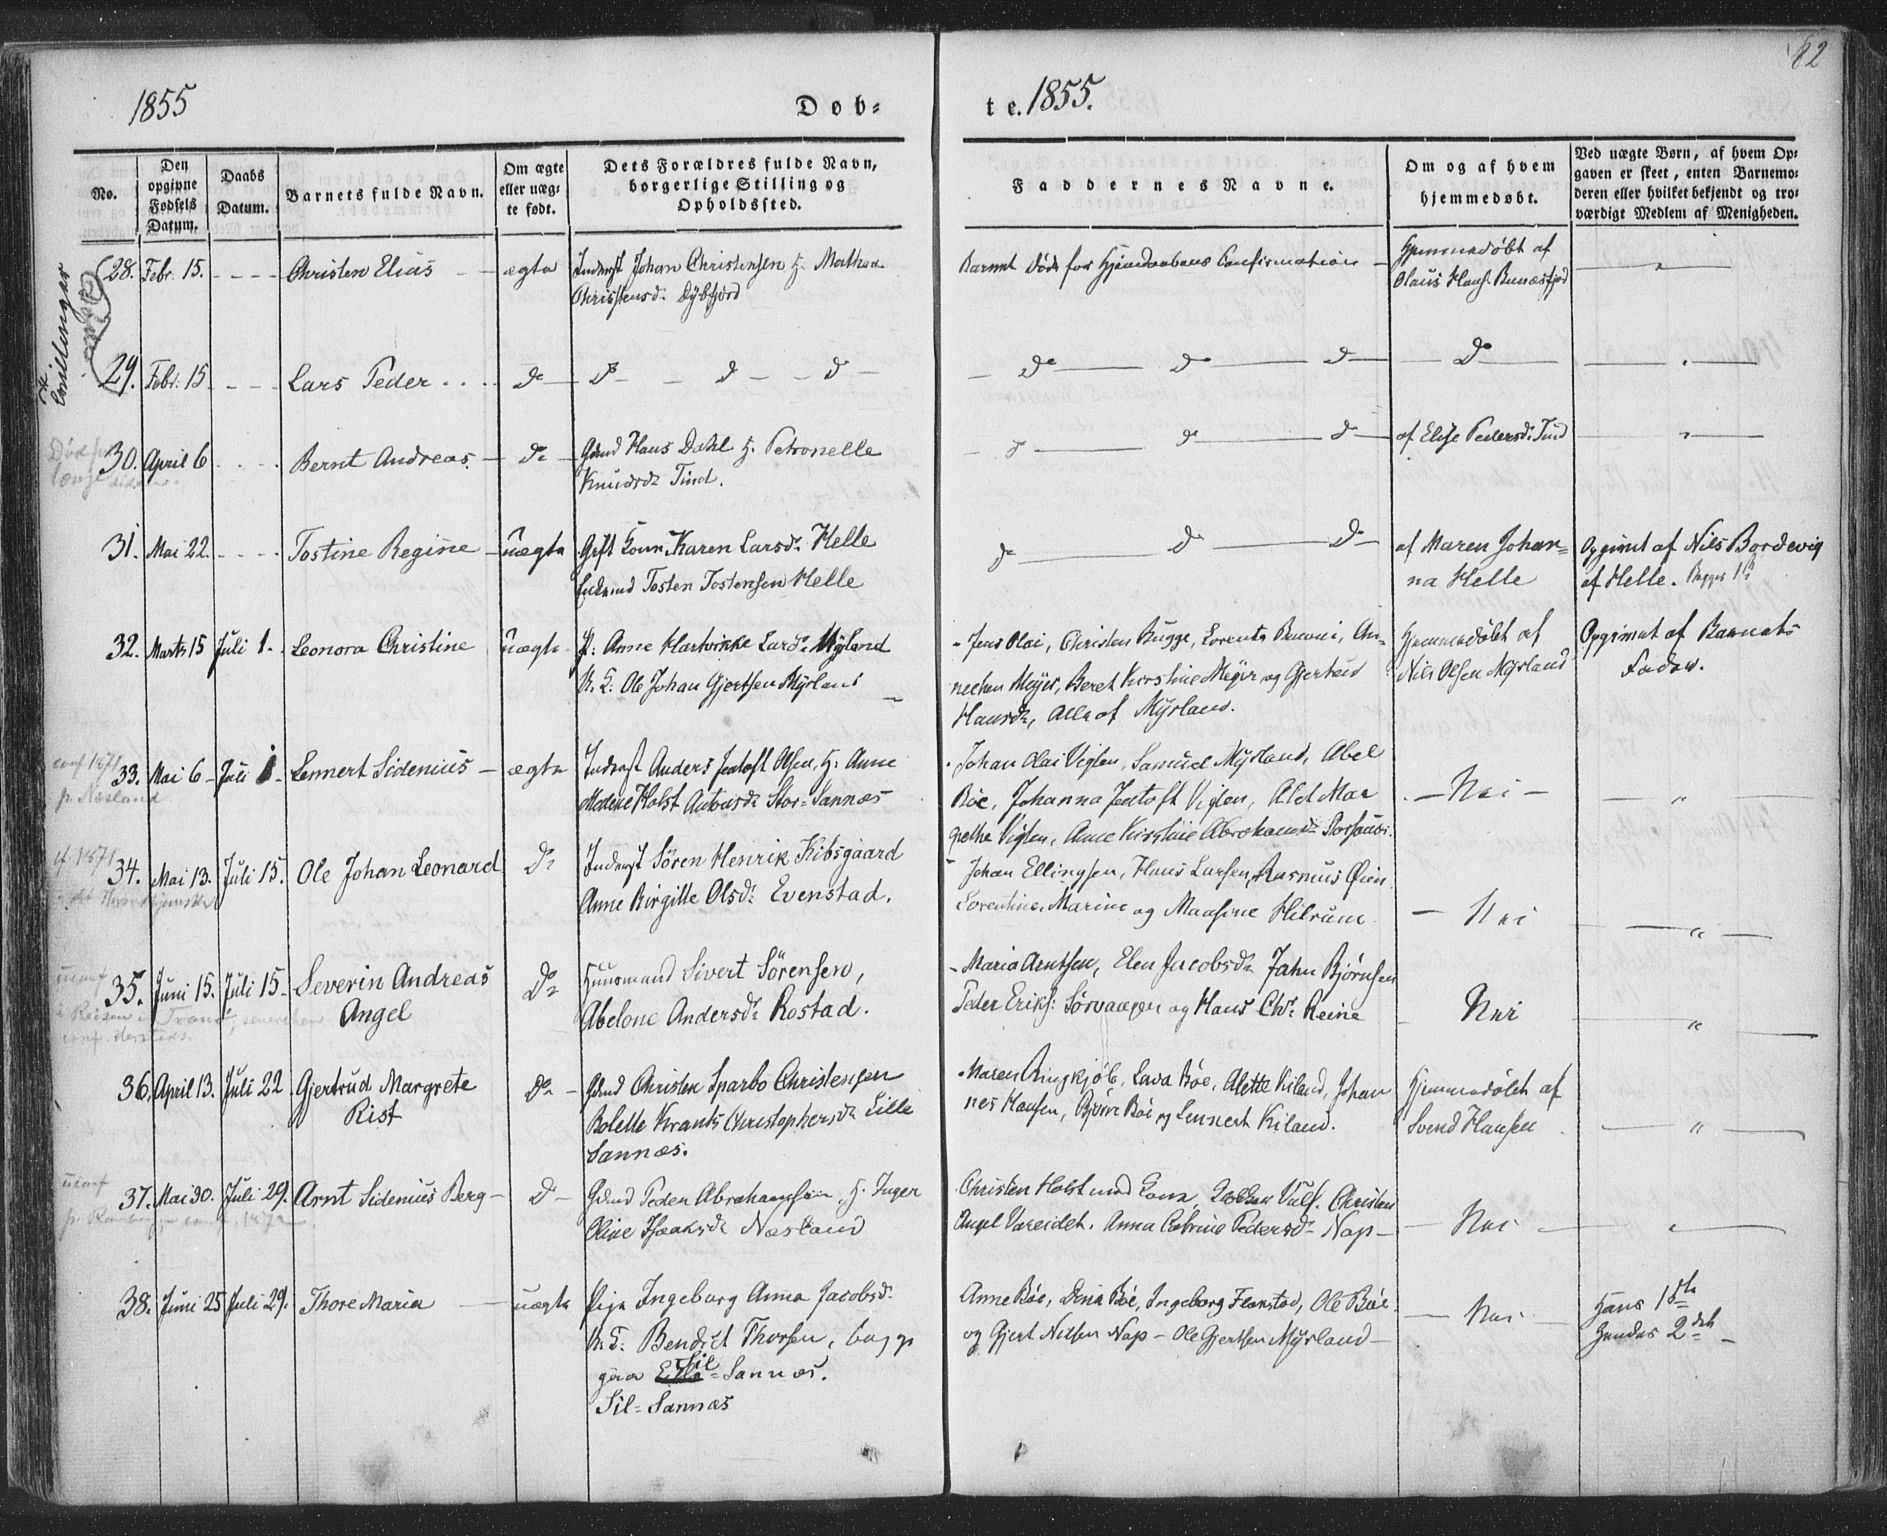 82
1855
Døb-
te. 1855.
No.
Den opgivne Fødsels Datum.
Daabs Datum.
Barnets fulde Navn.
Om ægte eller uægte født.
Dets Forældres fulde Navn, borgerlige Stilling og Opholdssted.
Faddernes Navne.
Om og af hvem hjemmedøbt.
Ved uægte Børn, af hvem Opgaven er skeet, enten Barnemoderen eller hvilket bekjendt og troværdigt Medlem af Menigheden.
Tvillinger
28. Febr. 15. - - - - Christen Elias - ægte Inderst Johan Christensen H. Mathea Barnet døde før Hjemdaabens Confirmation - Hjemmedøbt af
Christensd. Dybfjord Olaus Hans. Bunæsfjord
29. Febr. 15 - - - - Lars Peder . . . . do do - - do - - do - do do do do
30. April 6 . . . . Bernt Andreas. - do Gdmd Hans Dahl H. Petronelle do do do af Elise Pedersd. Tind
Knudsdr Tind.
31. Mai 22. - - - - Tostine Regine - uægte Gift Kone Karen Larsdr Helle do do do - af Maren Johan= Opgivet af Nils Bordevig
Tosten Tostensen Helle na Helle af Helle. Begges 1ste
32. Marts 15 Juli 1. Leonora Christine uægte P. Anne Hartvikke Larsdr Myrland - Jens Olai, Christen Bugge, Lorents Benoni, An- Hjemmedøbt af Opgivet af Barnets
K. T. Ole Johan Gjertsen Myrland nechen Meyer, Beret Kirstine Meyer og Gjertrud Nils Olsen Myrland Fader.
Hansdr, Alle af Myrland.
conf 1871
p. Næsland
33. Mai 6 - Juli 1 - Lennert Sidenius - ægte Inderst Anders Jentoft Olsen, H. Anne - Johan Olai Vigten, Samuel Myrland, Abel
Holst Stor-Sannæs Bøe, Johanna Jentoft Vigten, Alet Mar - Nei - "
grethe Vigten, Anne Kirstine Abrahamsdr
cf. 1871
34. Mai 13. Juli 15. Ole Johan Leonard do Inderst Søren Henrik Kibsgaard - Johan Ellingsen, Hans Larsen, Rasmus Øien
Anne Birgitte Olsdr Evenstad. Sorentine, Marine og Maasine Hilrum - Nei "
35. Juni 15. Juli 15. Severin Andreas do Huusmand Sivert Sørensen, - Maria Arntsen, Elen Jacobsdr Jahn Bjørnsen
Angel Abelone Andersdr Rostad. Peder Eriks. Sørvaagen og Hans Chr. Reine - Nei "
36. April 13. Juli 22. Gjertrud Margrete do - Gdmd Christen Sparbo Christensen - Maren Ringkjøb, Lava Bøe, Alette Kiland, Johan Hjemmedøbt af
Rist Bolette Krants Christophersdr Lille nes Hansen, Bjørn Bøe og Lennert Kiland. Svend Hansen "
Sannæs.
37. Mai 30. Juli 29. Arnt Sidenius Berg - do - Gdmd Peder Abrahamsen, H. Inger Christen Holst med Kone, Christen
Oline Isaaksdr Næsland Angel Anna Pedersdr Nap - - Nei - "
38. Juni 25 Juli 29. Thore Maria - uægte Pige Ingeborg Anna Jacobsd. Anne Bøe, Dina Bøe, Ingeborg Flakstad, Ole Bøe - Nei Hans 1ste
K. T. Bendit Thorsen, begge og Gjert Nilsen Nap - Ole Gjertsen Myrland - Hendes 2det
paa Sil-Sannæs.
Sil-Sannæs